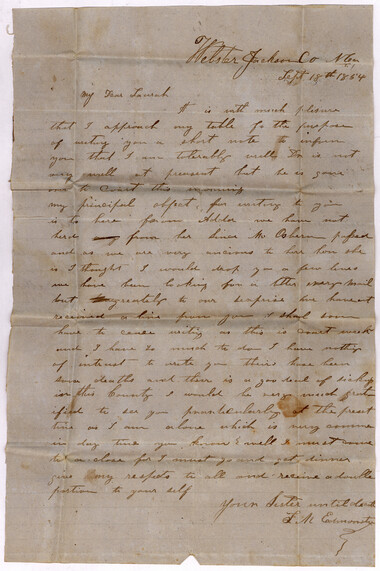 Webster Jackson Co N
Sept 18th 1854
My Dear
It is with much plesure
that I approach my table fo the purpose
of writing you a short note to inform
you that I am tolerably well Do is not
very well at present but he is gone
out to court this morning
my principal object for writing to you
is to here from Addie we have not
herd from her since Mr Osborn passed
and as we are very ancious to her how she
is I thought I would drop you a few lines
we have been looking for a letter every mail
but greately to our surprise we have not
received a line from you I shal soon
have to cease writing as this is court week
and I have so much to do I have nothing
of interest to write you theirs have been
some deaths and there is a good deal of sickness
in this County I would be very much grat
ified to see you particularly at the present
time as I am alone which is very common
in day time you know well I must come
to a close for I must go and get dinner
give my respects to all and receive a double
portion to your self
Your Sister until death
L. M. Edmonston